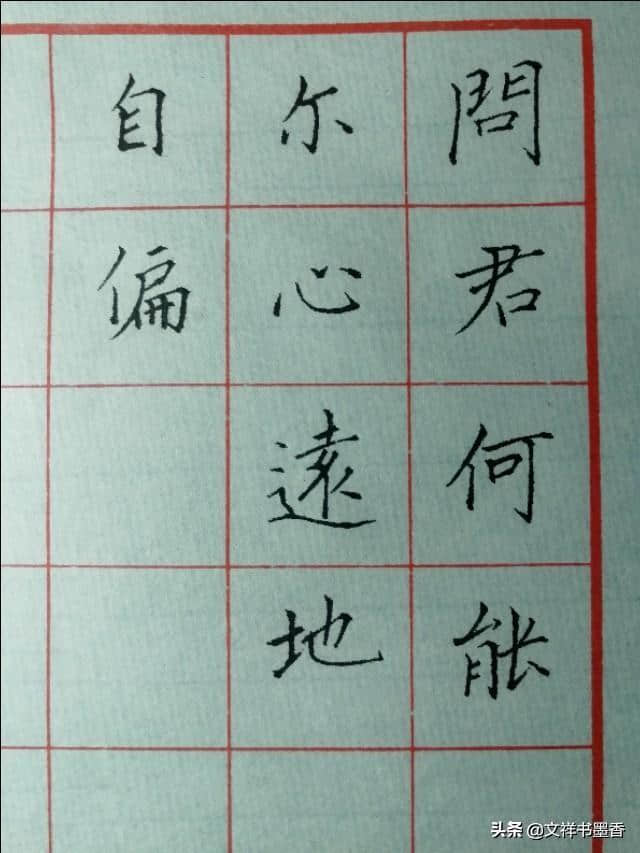 問君何能
尔心遠地
自偏
头条 @文祥书墨香